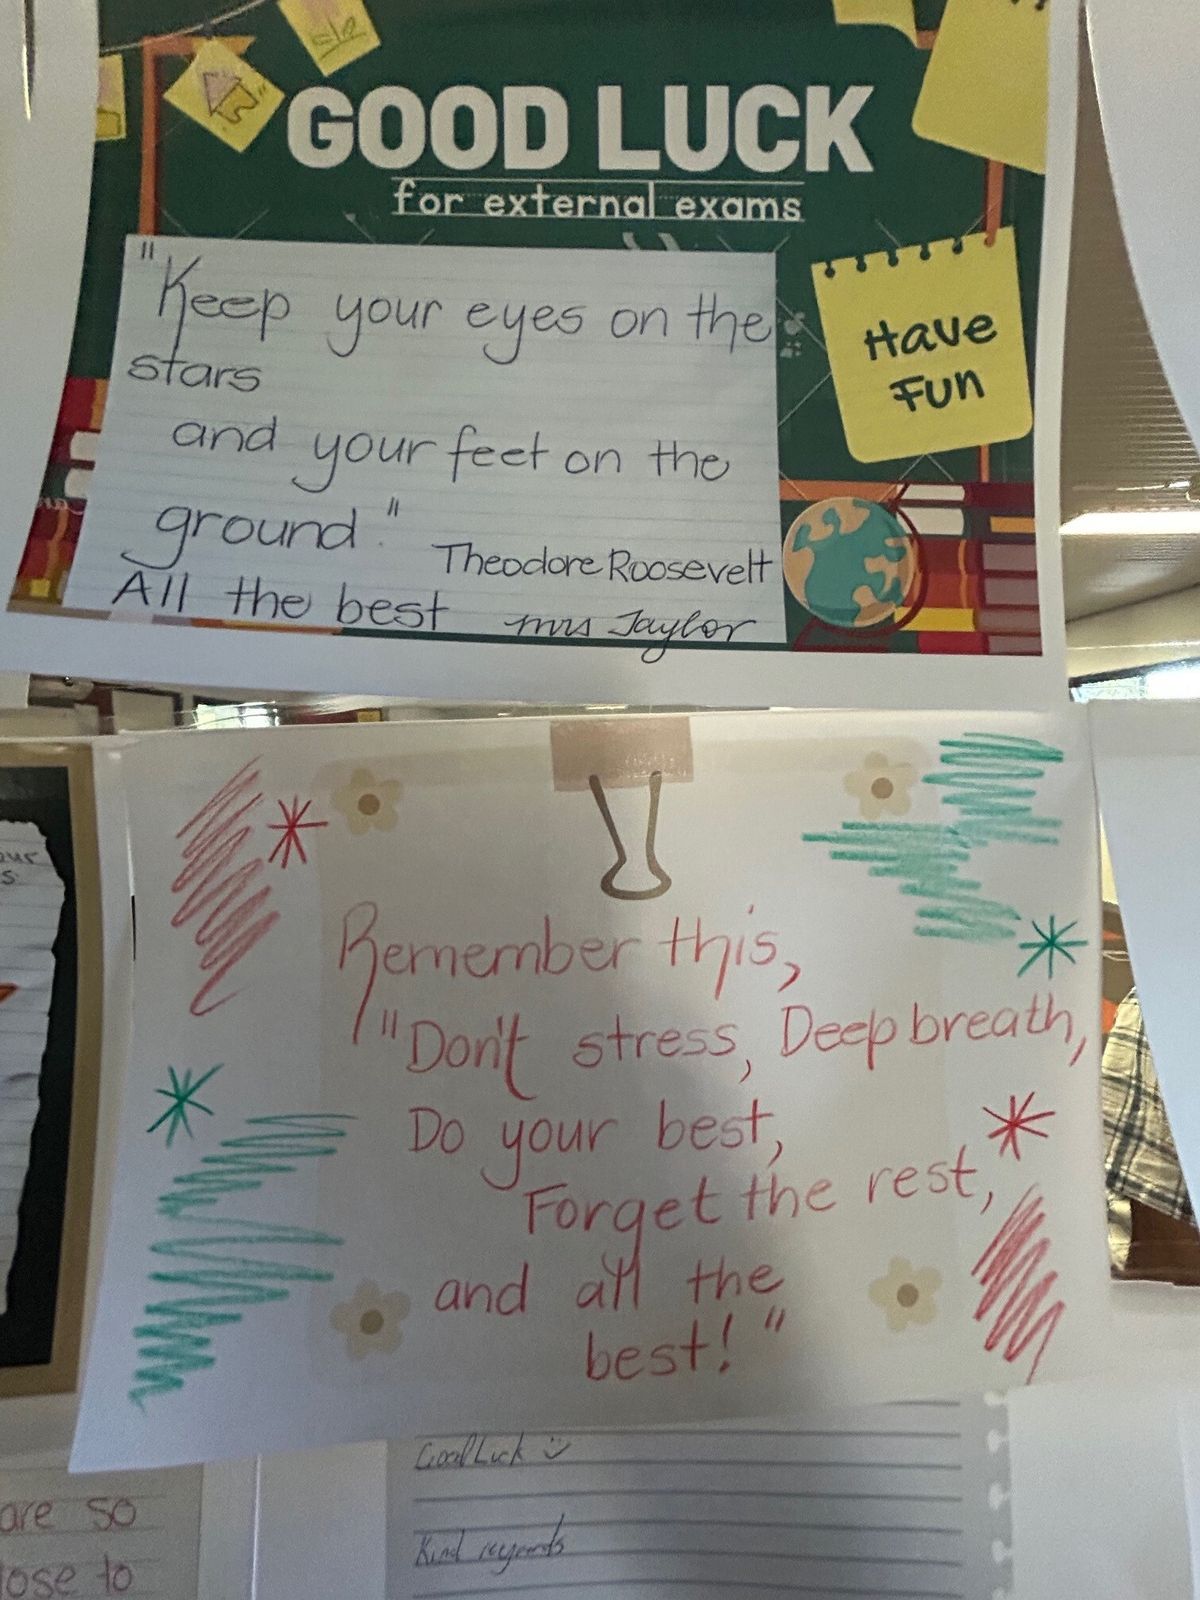 GOOD LUCK
for external exams
"Keep your eyes on the
stars
and your feet on the
ground."
Theodore Roosevelt
All the best mrs Taylor
Have
Fun
Remember this,
"Don't stress, Deep breath,
Do your best,
Forget the rest,
and all the
best!"
Good Luck
Kind regards
are so
lose to